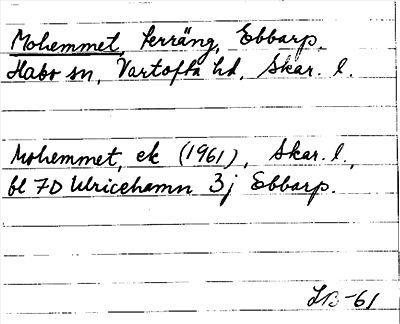 Mohemmet, terräng, Ebbarp,
Habo sn, Vartofta hd, Skar. l.
Mohemmet, ek (1961), Skar. l.,
bl 7D Ulricehamn 3j Ebbarp.
LB-61